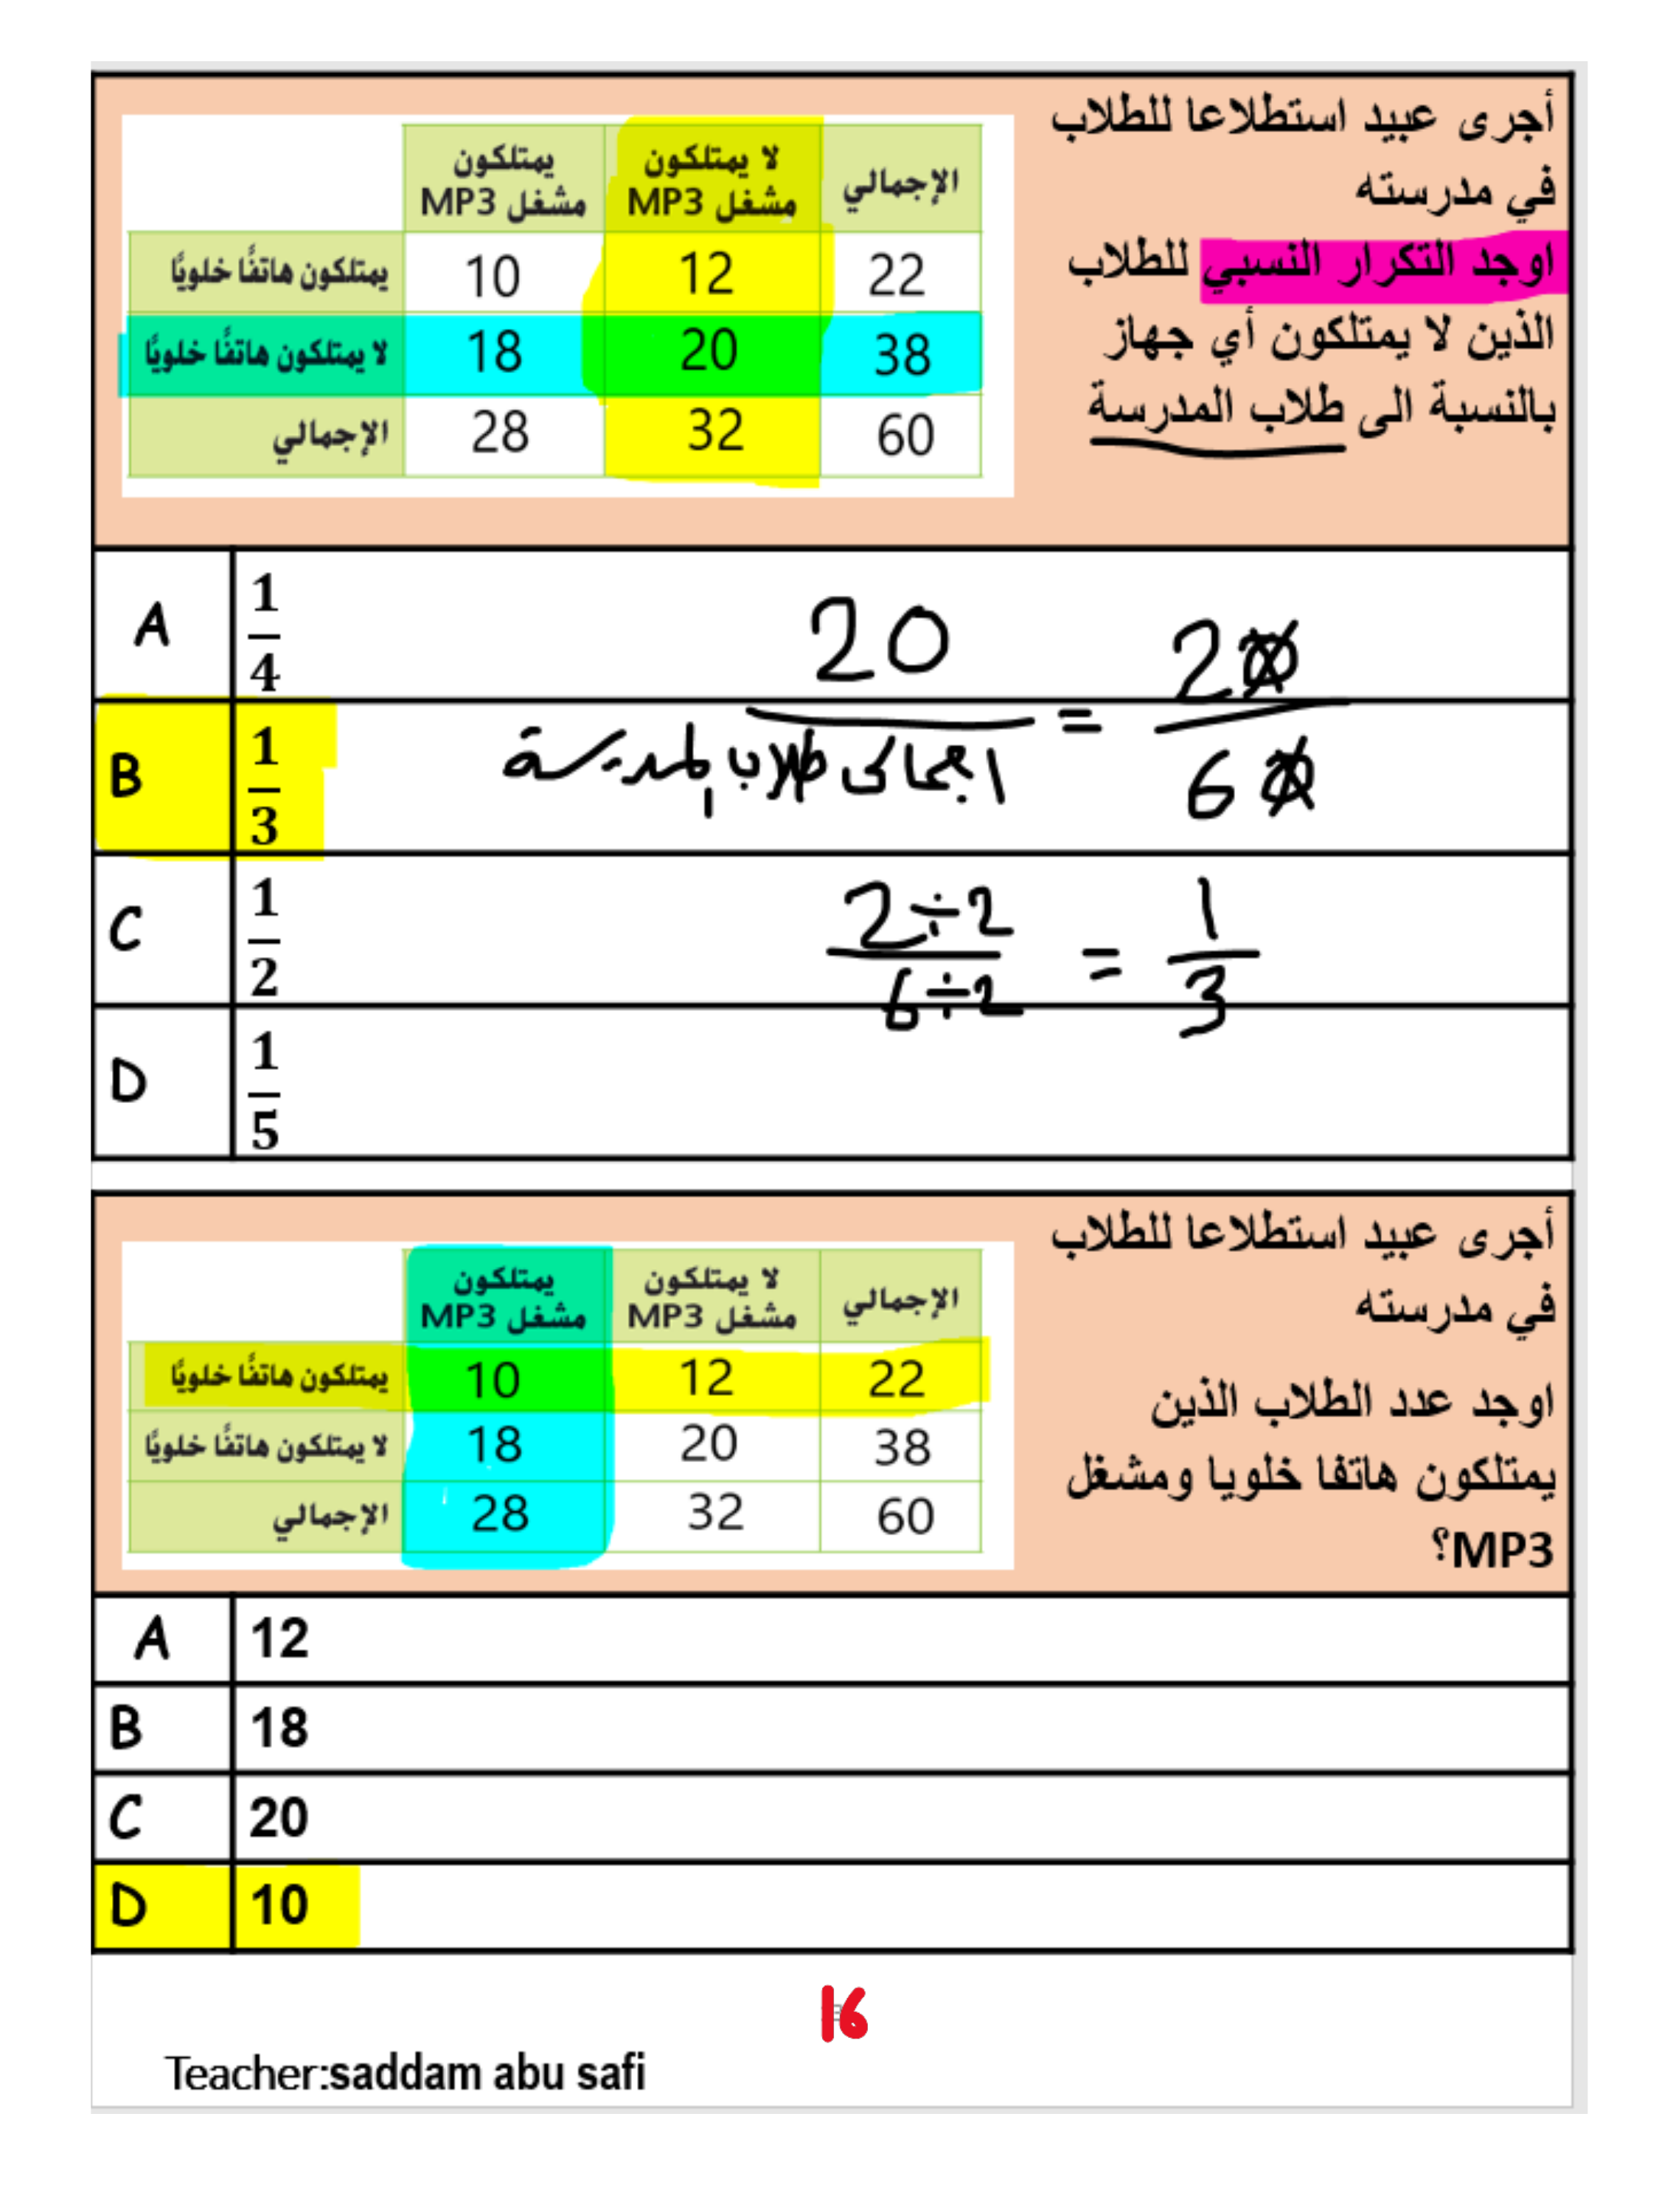 أجرى عبيد استطلاعا للطلاب
في مدرسته
اوجد التكرار النسبي للطلاب
الذين لا يمتلكون أي جهاز
بالنسبة الى طلاب المدرسة
يمتلكون مشغل MP3 لا يمتلكون مشغل MP3 الإجمالي
يمتلكون هاتفًا خلويًا 10 12 22
لا يمتلكون هاتفًا خلويًا 18 20 38
الإجمالي 28 32 60
A 1/4
B 1/3
C 1/2
D 1/5
20 / اجمالى طلاب المدرسة = 20/60
2÷2 / 6÷2 = 1/3
أجرى عبيد استطلاعا للطلاب
في مدرسته
اوجد عدد الطلاب الذين
يمتلكون هاتفا خلويا ومشغل
MP3؟
يمتلكون مشغل MP3 لا يمتلكون مشغل MP3 الإجمالي
يمتلكون هاتفًا خلويًا 10 12 22
لا يمتلكون هاتفًا خلويًا 18 20 38
الإجمالي 28 32 60
A 12
B 18
C 20
D 10
16
Teacher:saddam abu safi